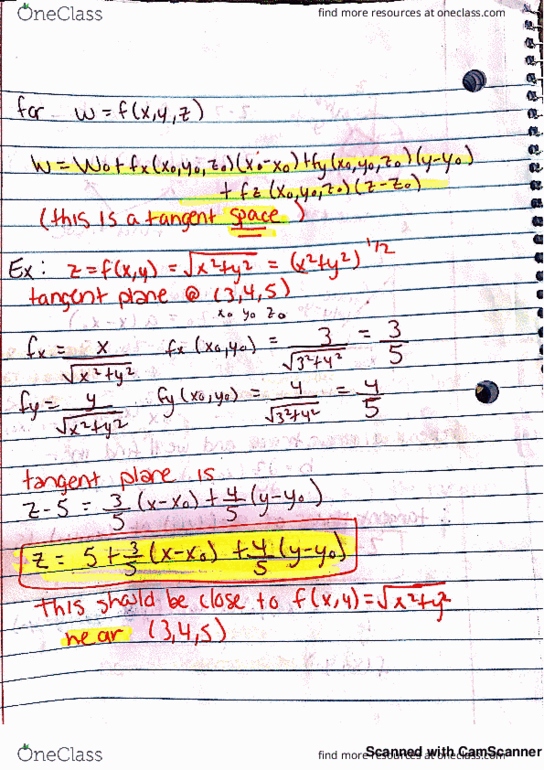 OneClass
find more resources at oneclass.com
for w = f(x,y,z)
w = w₀ + fx(x₀,y₀,z₀)(x-x₀) + fy(x₀,y₀,z₀)(y-y₀)
+ fz(x₀,y₀,z₀)(z-z₀)
(this is a tangent space)
Ex: z = f(x,y) = √x²+y² = (x²+y²)^1/2
tangent plane @ (3,4,5)
x₀ y₀ z₀
fx = x/√x²+y² fx(x₀,y₀) = 3/√3²+4² = 3/5
fy = y/√x²+y² fy(x₀,y₀) = 4/√3²+4² = 4/5
tangent plane is
z-5 = 3/5(x-x₀) + 4/5(y-y₀)
z = 5 + 3/5(x-x₀) + 4/5(y-y₀)
this should be close to f(x,y) = √x²+y²
near (3,4,5)
OneClass
find more resources at oneclass.com
Scanned with CamScanner